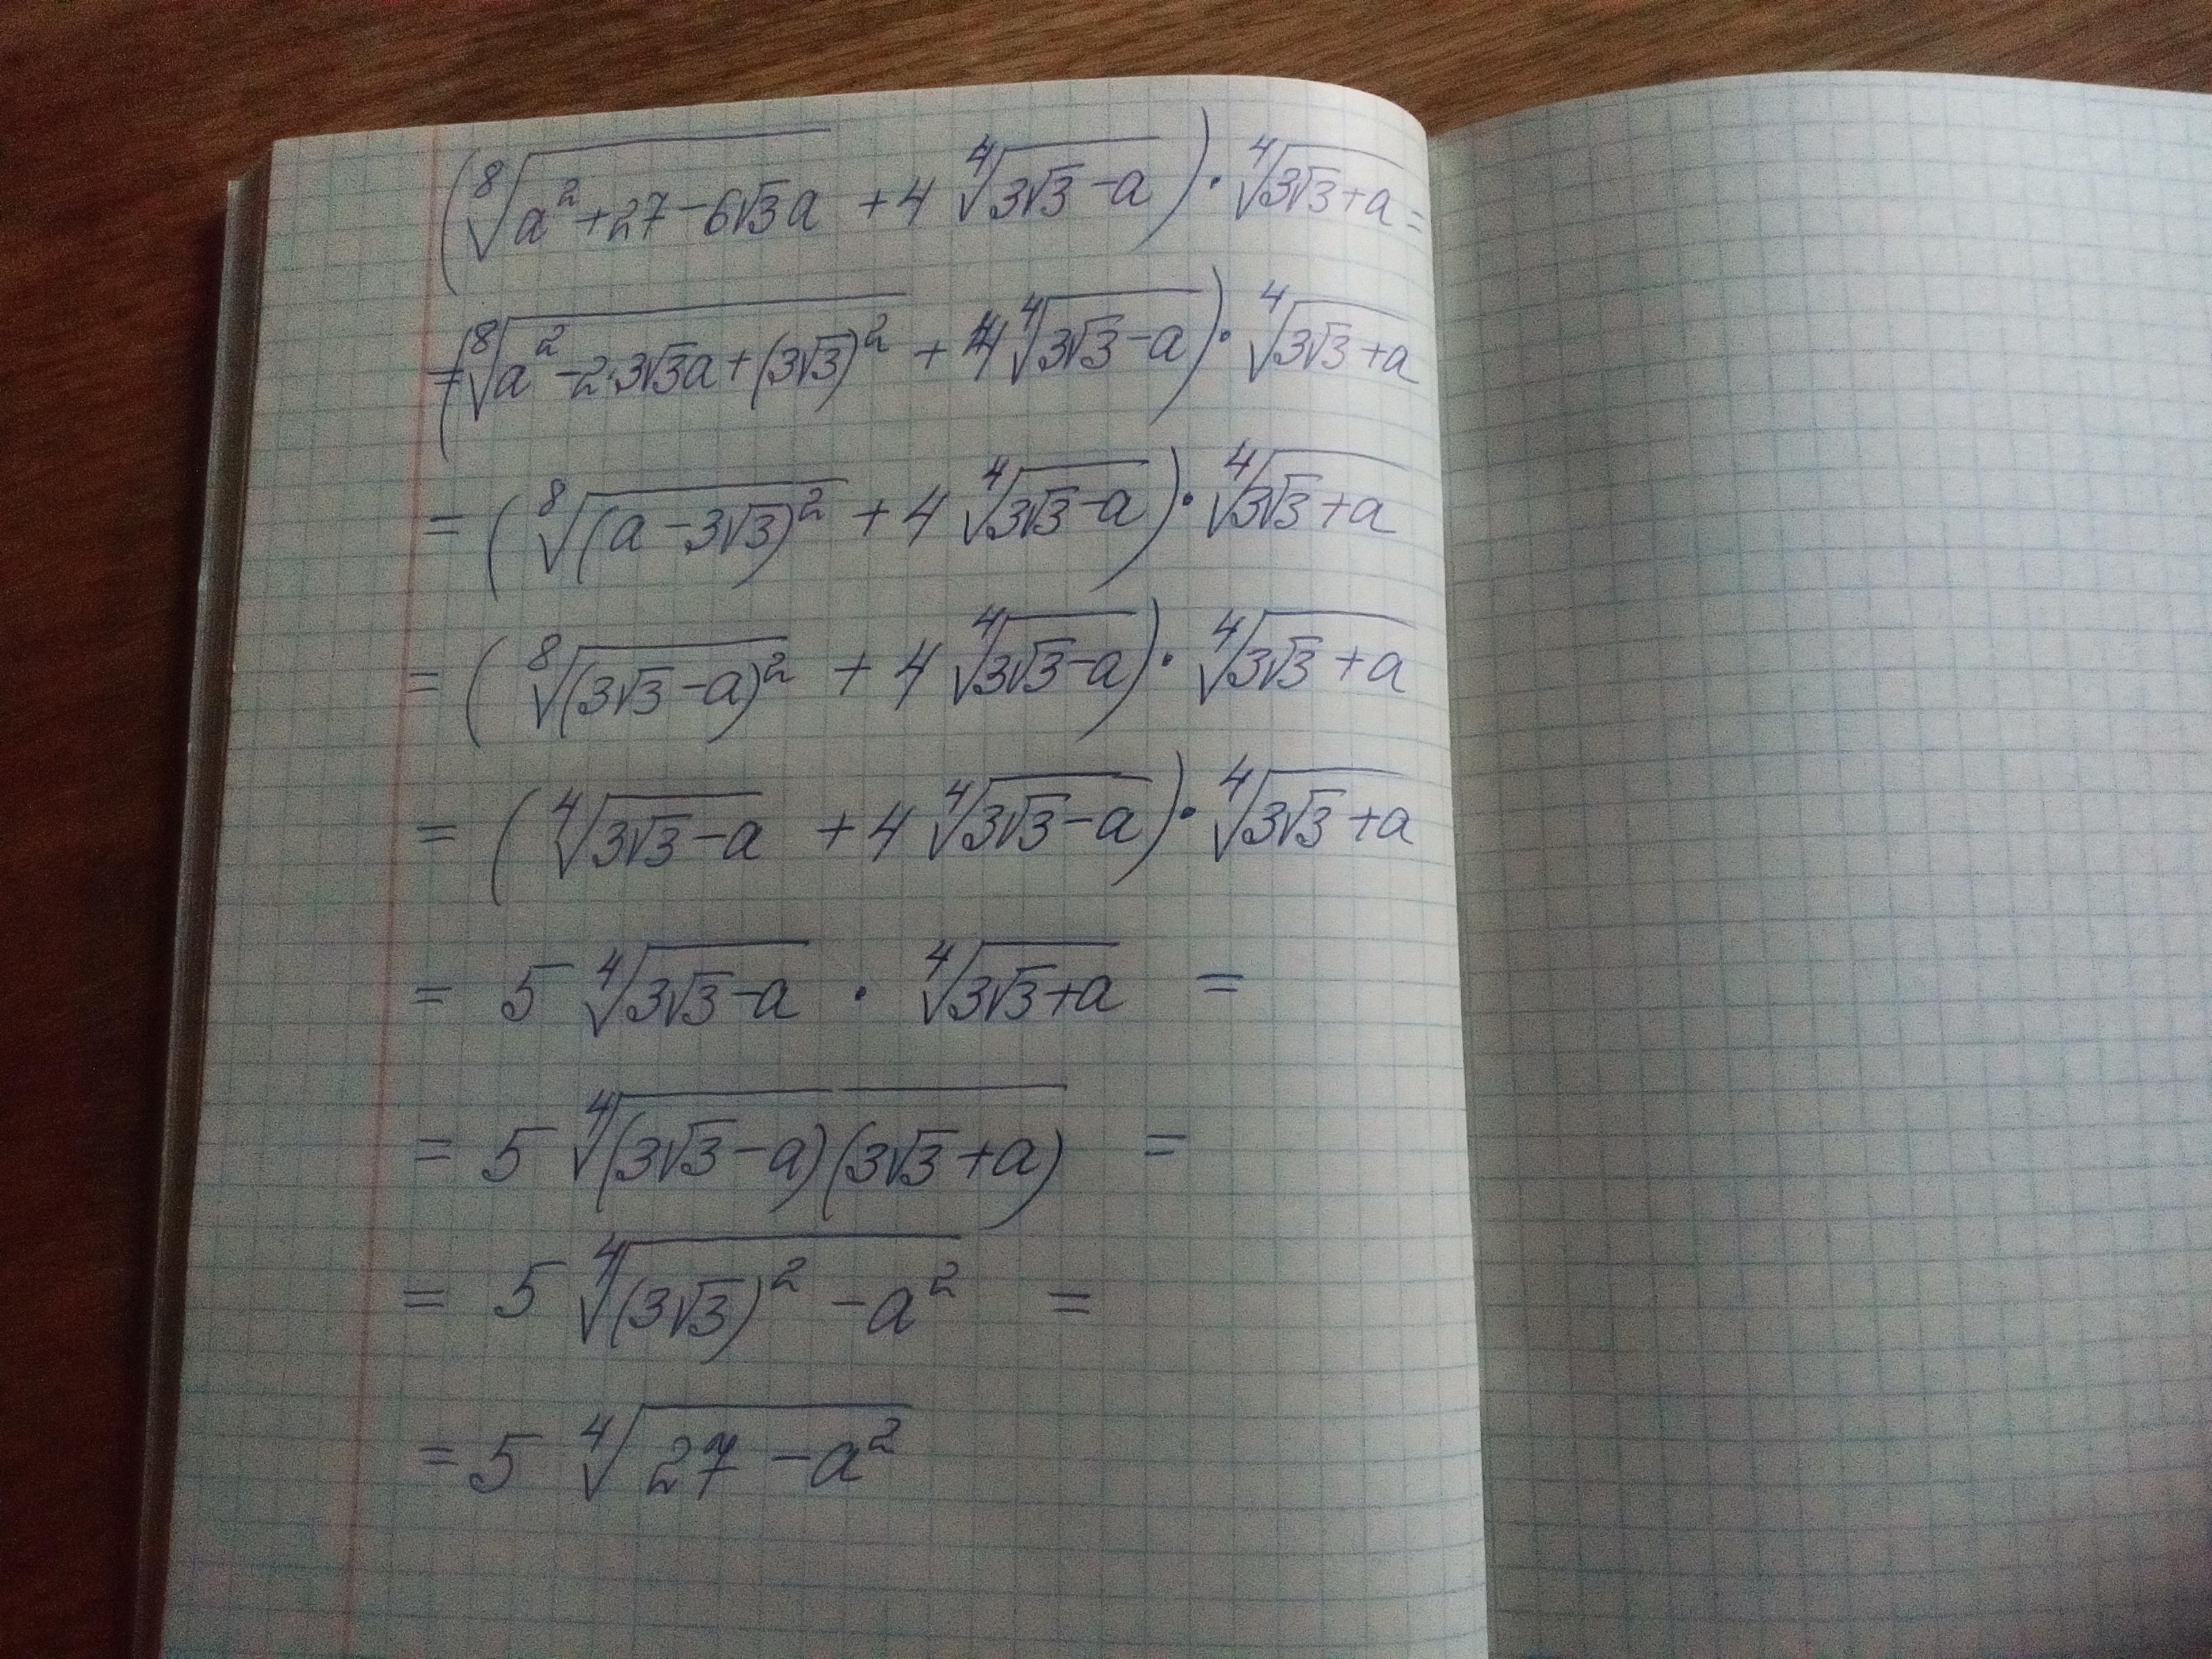 (⁸√(a² + 27 - 6√3a) + 4 ⁴√(3√3 - a)) · ⁴√(3√3 + a) =
= (⁸√(a² - 2·3√3a + (3√3)²) + 4 ⁴√(3√3 - a)) · ⁴√(3√3 + a)
= (⁸√((a - 3√3)²) + 4 ⁴√(3√3 - a)) · ⁴√(3√3 + a)
= (⁸√((3√3 - a)²) + 4 ⁴√(3√3 - a)) · ⁴√(3√3 + a)
= (⁴√(3√3 - a) + 4 ⁴√(3√3 - a)) · ⁴√(3√3 + a)
= 5 ⁴√(3√3 - a) · ⁴√(3√3 + a) =
= 5 ⁴√((3√3 - a)(3√3 + a)) =
= 5 ⁴√((3√3)² - a²) =
= 5 ⁴√(27 - a²)